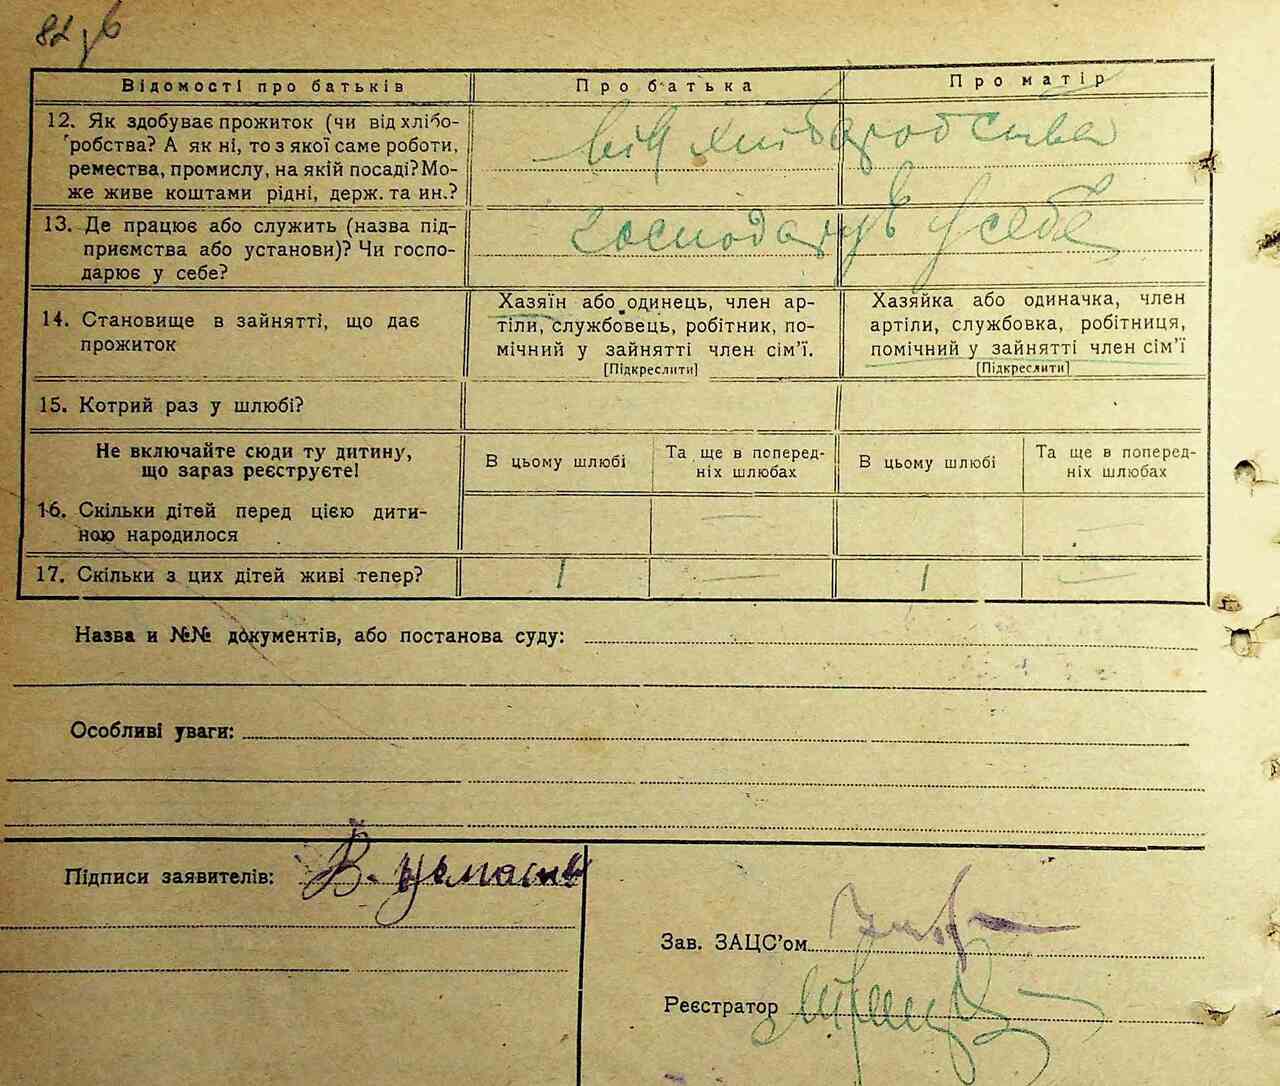 82 зв
Відомості про батьків
Про батька
Про матір
12. Як здобуває прожиток (чи від хлібо-
робства? А як ні, то з якої саме роботи,
ремества, промислу, на якій посаді? Мо-
же живе коштами рідні, держ. та ин.?
від хліборобства
13. Де працює або служить (назва під-
приємства або установи)? Чи госпо-
дарює у себе?
господарує у себе
14. Становище в зайнятті, що дає
прожиток
Хазяїн або одинець, член ар-
тіли, службовець, робітник, по-
мічний у зайнятті член сім'ї.
[Підкреслити]
Хазяйка або одиначка, член
артіли, службовка, робітниця,
помічний у зайнятті член сім'ї
[Підкреслити]
15. Котрий раз у шлюбі?
Не включайте сюди ту дитину,
що зараз реєструєте!
В цьому шлюбі
Та ще в поперед-
ніх шлюбах
В цьому шлюбі
Та ще в поперед-
ніх шлюбах
16. Скільки дітей перед цією дити-
ною народилося
—
—
17. Скільки з цих дітей живі тепер?
1
—
1
—
Назва и №№ документів, або постанова суду:
Особливі уваги:
Підписи заявителів:
В.
Зав. ЗАЦС'ом
Реєстратор